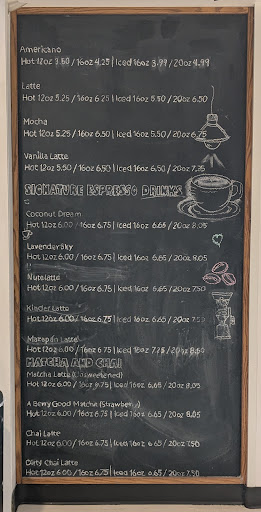 Americano
Hot 12oz 3.50 / 16oz 4.25 | Iced 16oz 3.99 / 20oz 4.99
Latte
Hot 12oz 5.25 / 16oz 6.25 | Iced 16oz 5.50 / 20oz 6.50
Mocha
Hot 12oz 5.25 / 16oz 6.50 | Iced 16oz 5.50 / 20oz 6.75
Vanilla Latte
Hot 12oz 5.50 / 16oz 6.50 | Iced 16oz 6.50 / 20oz 7.35
SIGNATURE ESPRESSO DRINKS
Coconut Dream
Hot 12oz 6.00 / 16oz 6.75 | Iced 16oz 6.65 / 20oz 8.05
Lavender Sky
Hot 12oz 6.00 / 16oz 6.75 | Iced 16oz 6.65 / 20oz 8.05
Nutelatte
Hot 12oz 6.00 / 16oz 6.75 | Iced 16oz 6.65 / 20oz 7.50
Kinder Latte
Hot 12oz 6.00 / 16oz 6.75 | Iced 16oz 6.65 / 20oz 7.50
Mazapán Latte
Hot 12oz 6.00 / 16oz 6.75 | Iced 16oz 7.75 / 20oz 8.60
MATCHA AND CHAI
Matcha Latte (Unsweetened)
Hot 12oz 6.00 / 16oz 6.75 | Iced 16oz 6.65 / 20oz 8.05
A Berry Good Matcha (Strawberry)
Hot 12oz 6.00 / 16oz 6.75 | Iced 16oz 6.65 / 20oz 8.05
Chai Latte
Hot 12oz 6.00 / 16oz 6.75 | Iced 16oz 6.65 / 20oz 7.50
Dirty Chai Latte
Hot 12oz 6.00 / 16oz 6.75 | Iced 16oz 6.65 / 20oz 7.50